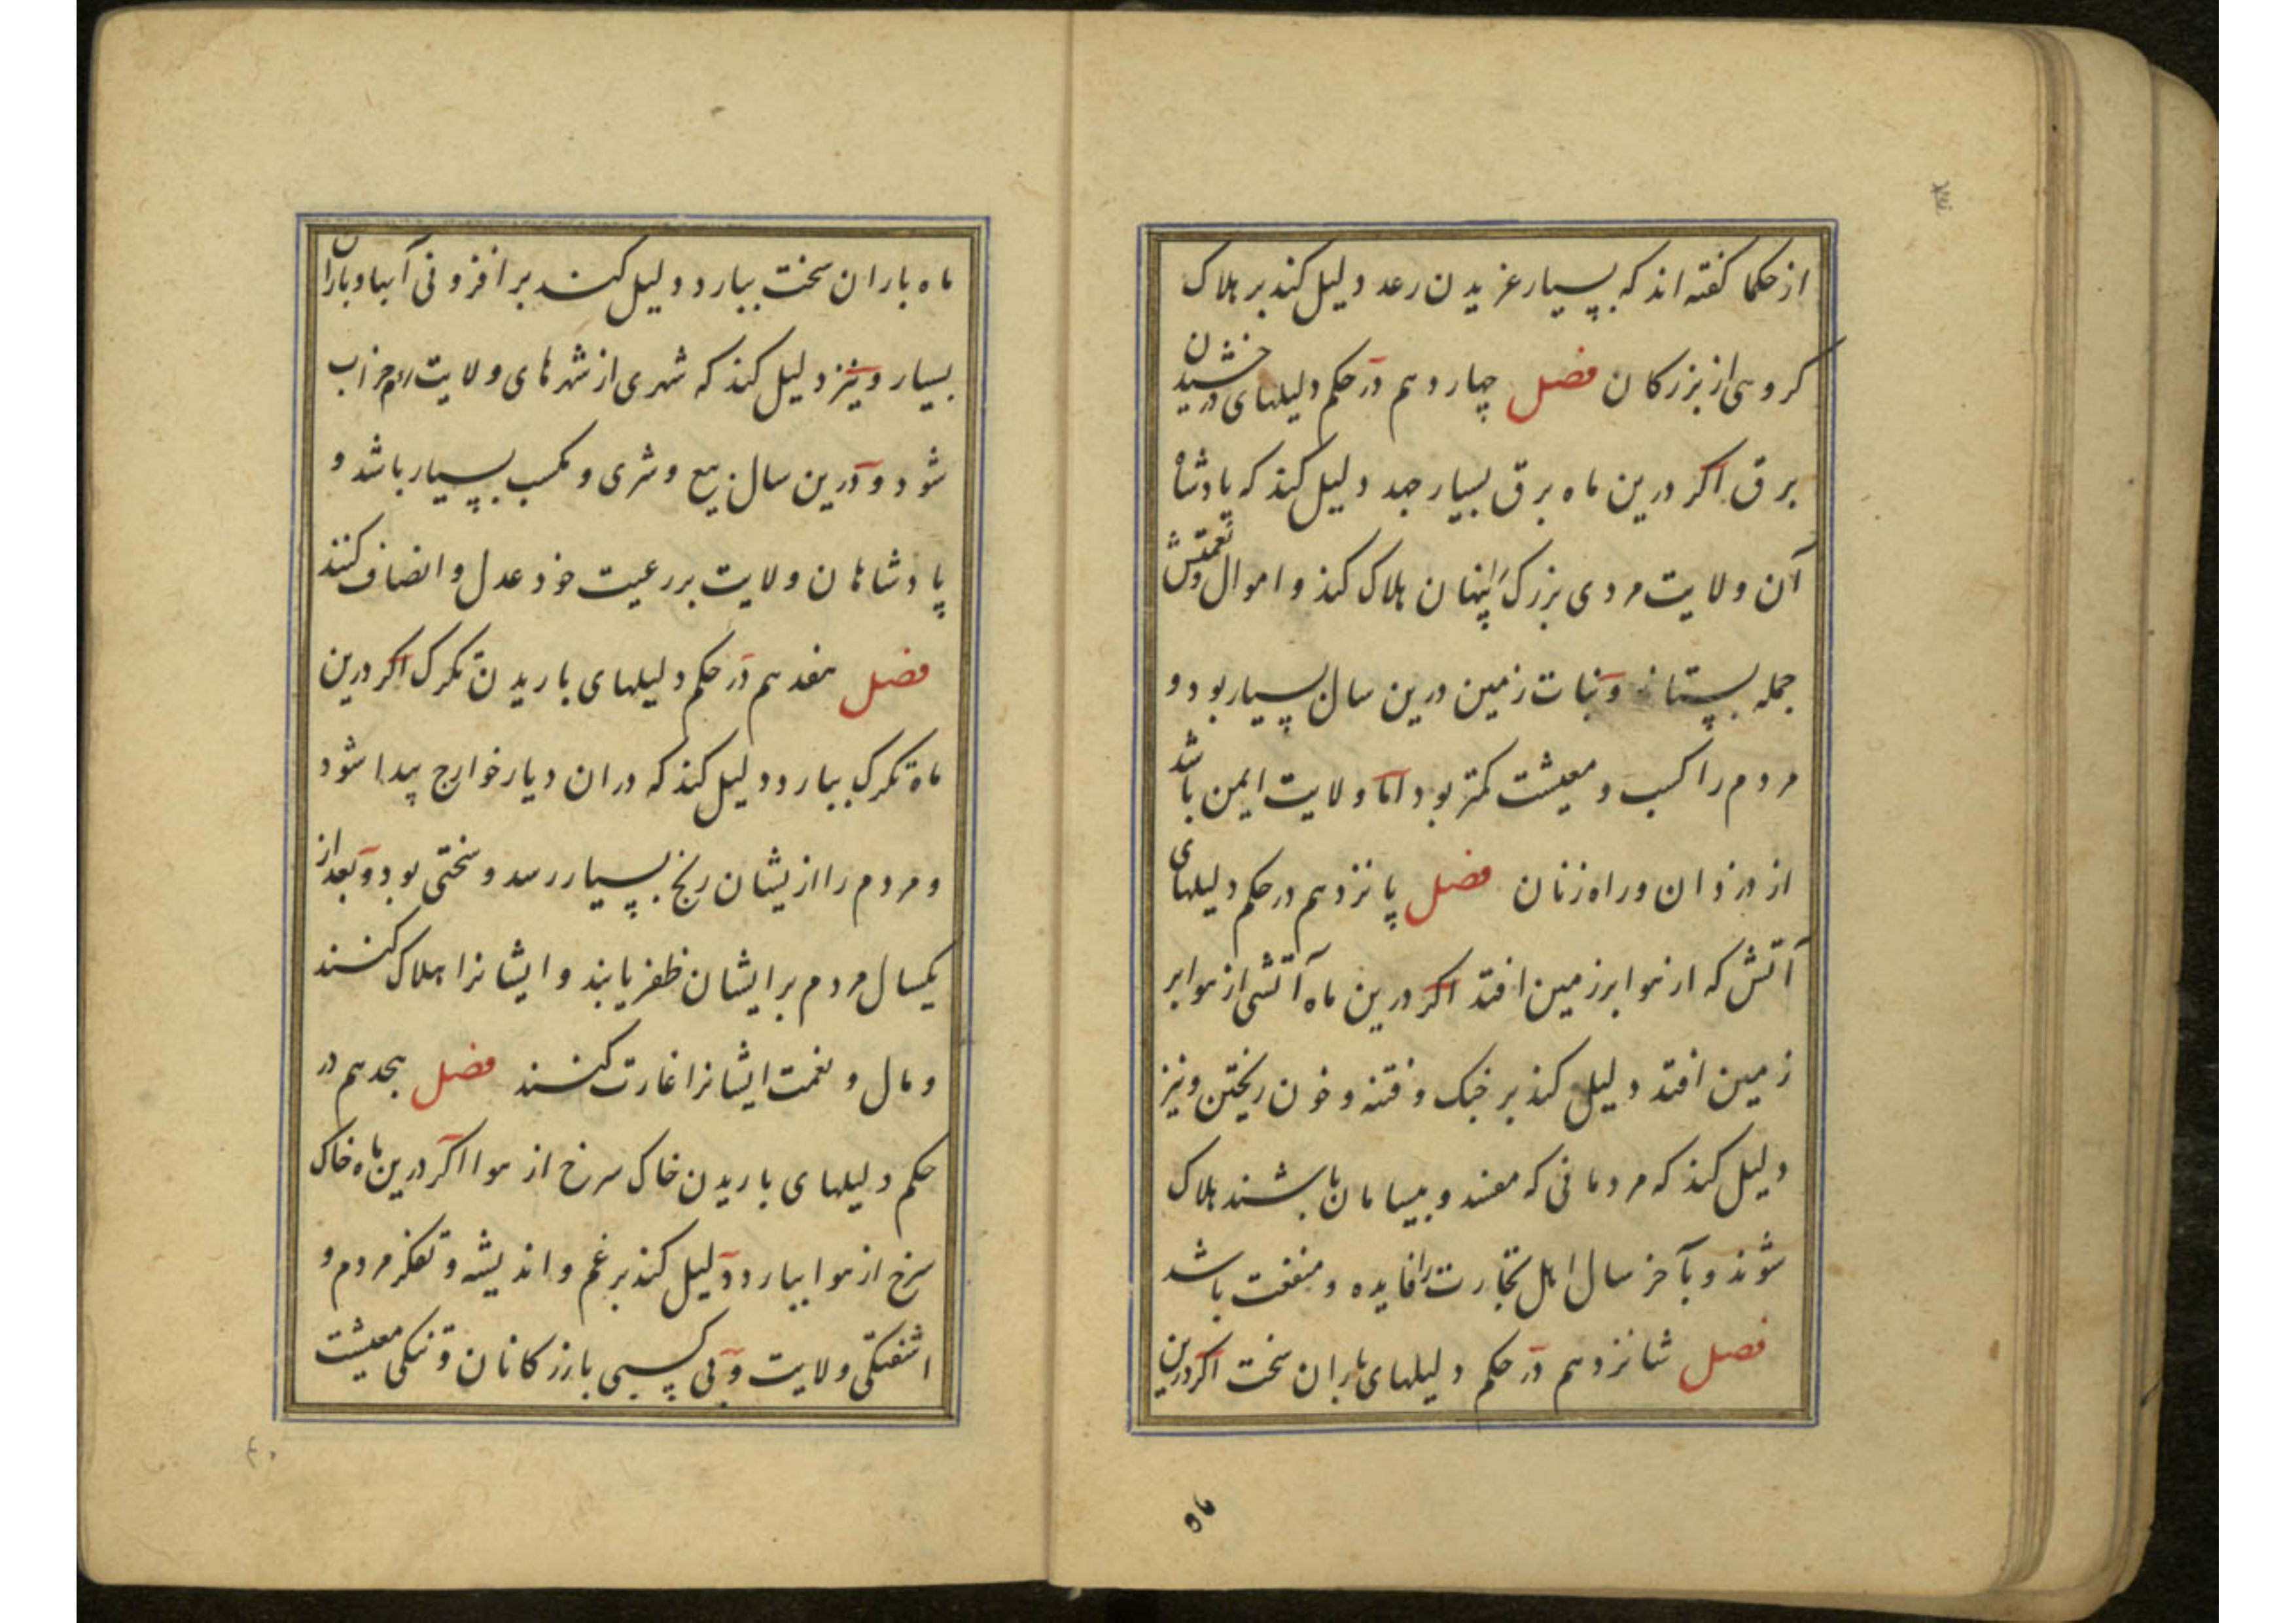 از حکما کفته اند که بسیار غریدن رعد دلیل کند بر هلاک
کروهی از بزرکان فصل چهاردهم در حکم دلیلهای درخشیدن
برق اکر درین ماه برق بسیار جهد دلیل کند که پادشاه
آن ولایت مردی بزرک را پنهان هلاک کند و اموال و نعمتش
جمله بستاند و نبات زمین درین سال بسیار بود و
مردم را کسب و معیشت کمتر بود اما ولایت ایمن باشد
از دزدان و راه زنان فصل پانزدهم در حکم دلیلهای
آتش که از هوا بر زمین افتد اکر درین ماه آتشی از هوا بر
زمین افتد دلیل کند بر جنک و فتنه و خون ریختن و نیز
دلیل کند که مردمانی که مفسد و بیسامان باشند هلاک
شوند و بآخر سال اهل تجارت را فایده و منفعت باشد
فصل شانزدهم در حکم دلیلهای باران سخت اکر درین
ماه باران سخت ببارد دلیل کند بر افزونی آبها و باران
بسیار و نیز دلیل کند که شهری از شهرهای ولایت روم خراب
شود و درین سال بیع و شری و مکسب بسیار باشد و
پادشاهان ولایت بر رعیت خود عدل و انصاف کنند
فصل هفدهم در حکم دلیلهای باریدن تکرک اکر درین
ماه تکرک ببارد دلیل کند که در ان دیار خوارج پیدا شود
و مردم را از یشان رنج بسیار رسد و سختی بود و بعد از
یکسال مردم بر ایشان ظفر یابند و ایشانرا هلاک کنند
و مال و نعمت ایشانرا غارت کنند فصل هجدهم در
حکم دلیلهای باریدن خاک سرخ از هوا اکر درین ماه خاک
سرخ از هوا ببارد دلیل کند بر غم و اندیشه و تفکر مردم و
اشفتکی ولایت و بی کسبی بازرکانان و تنکی معیشت